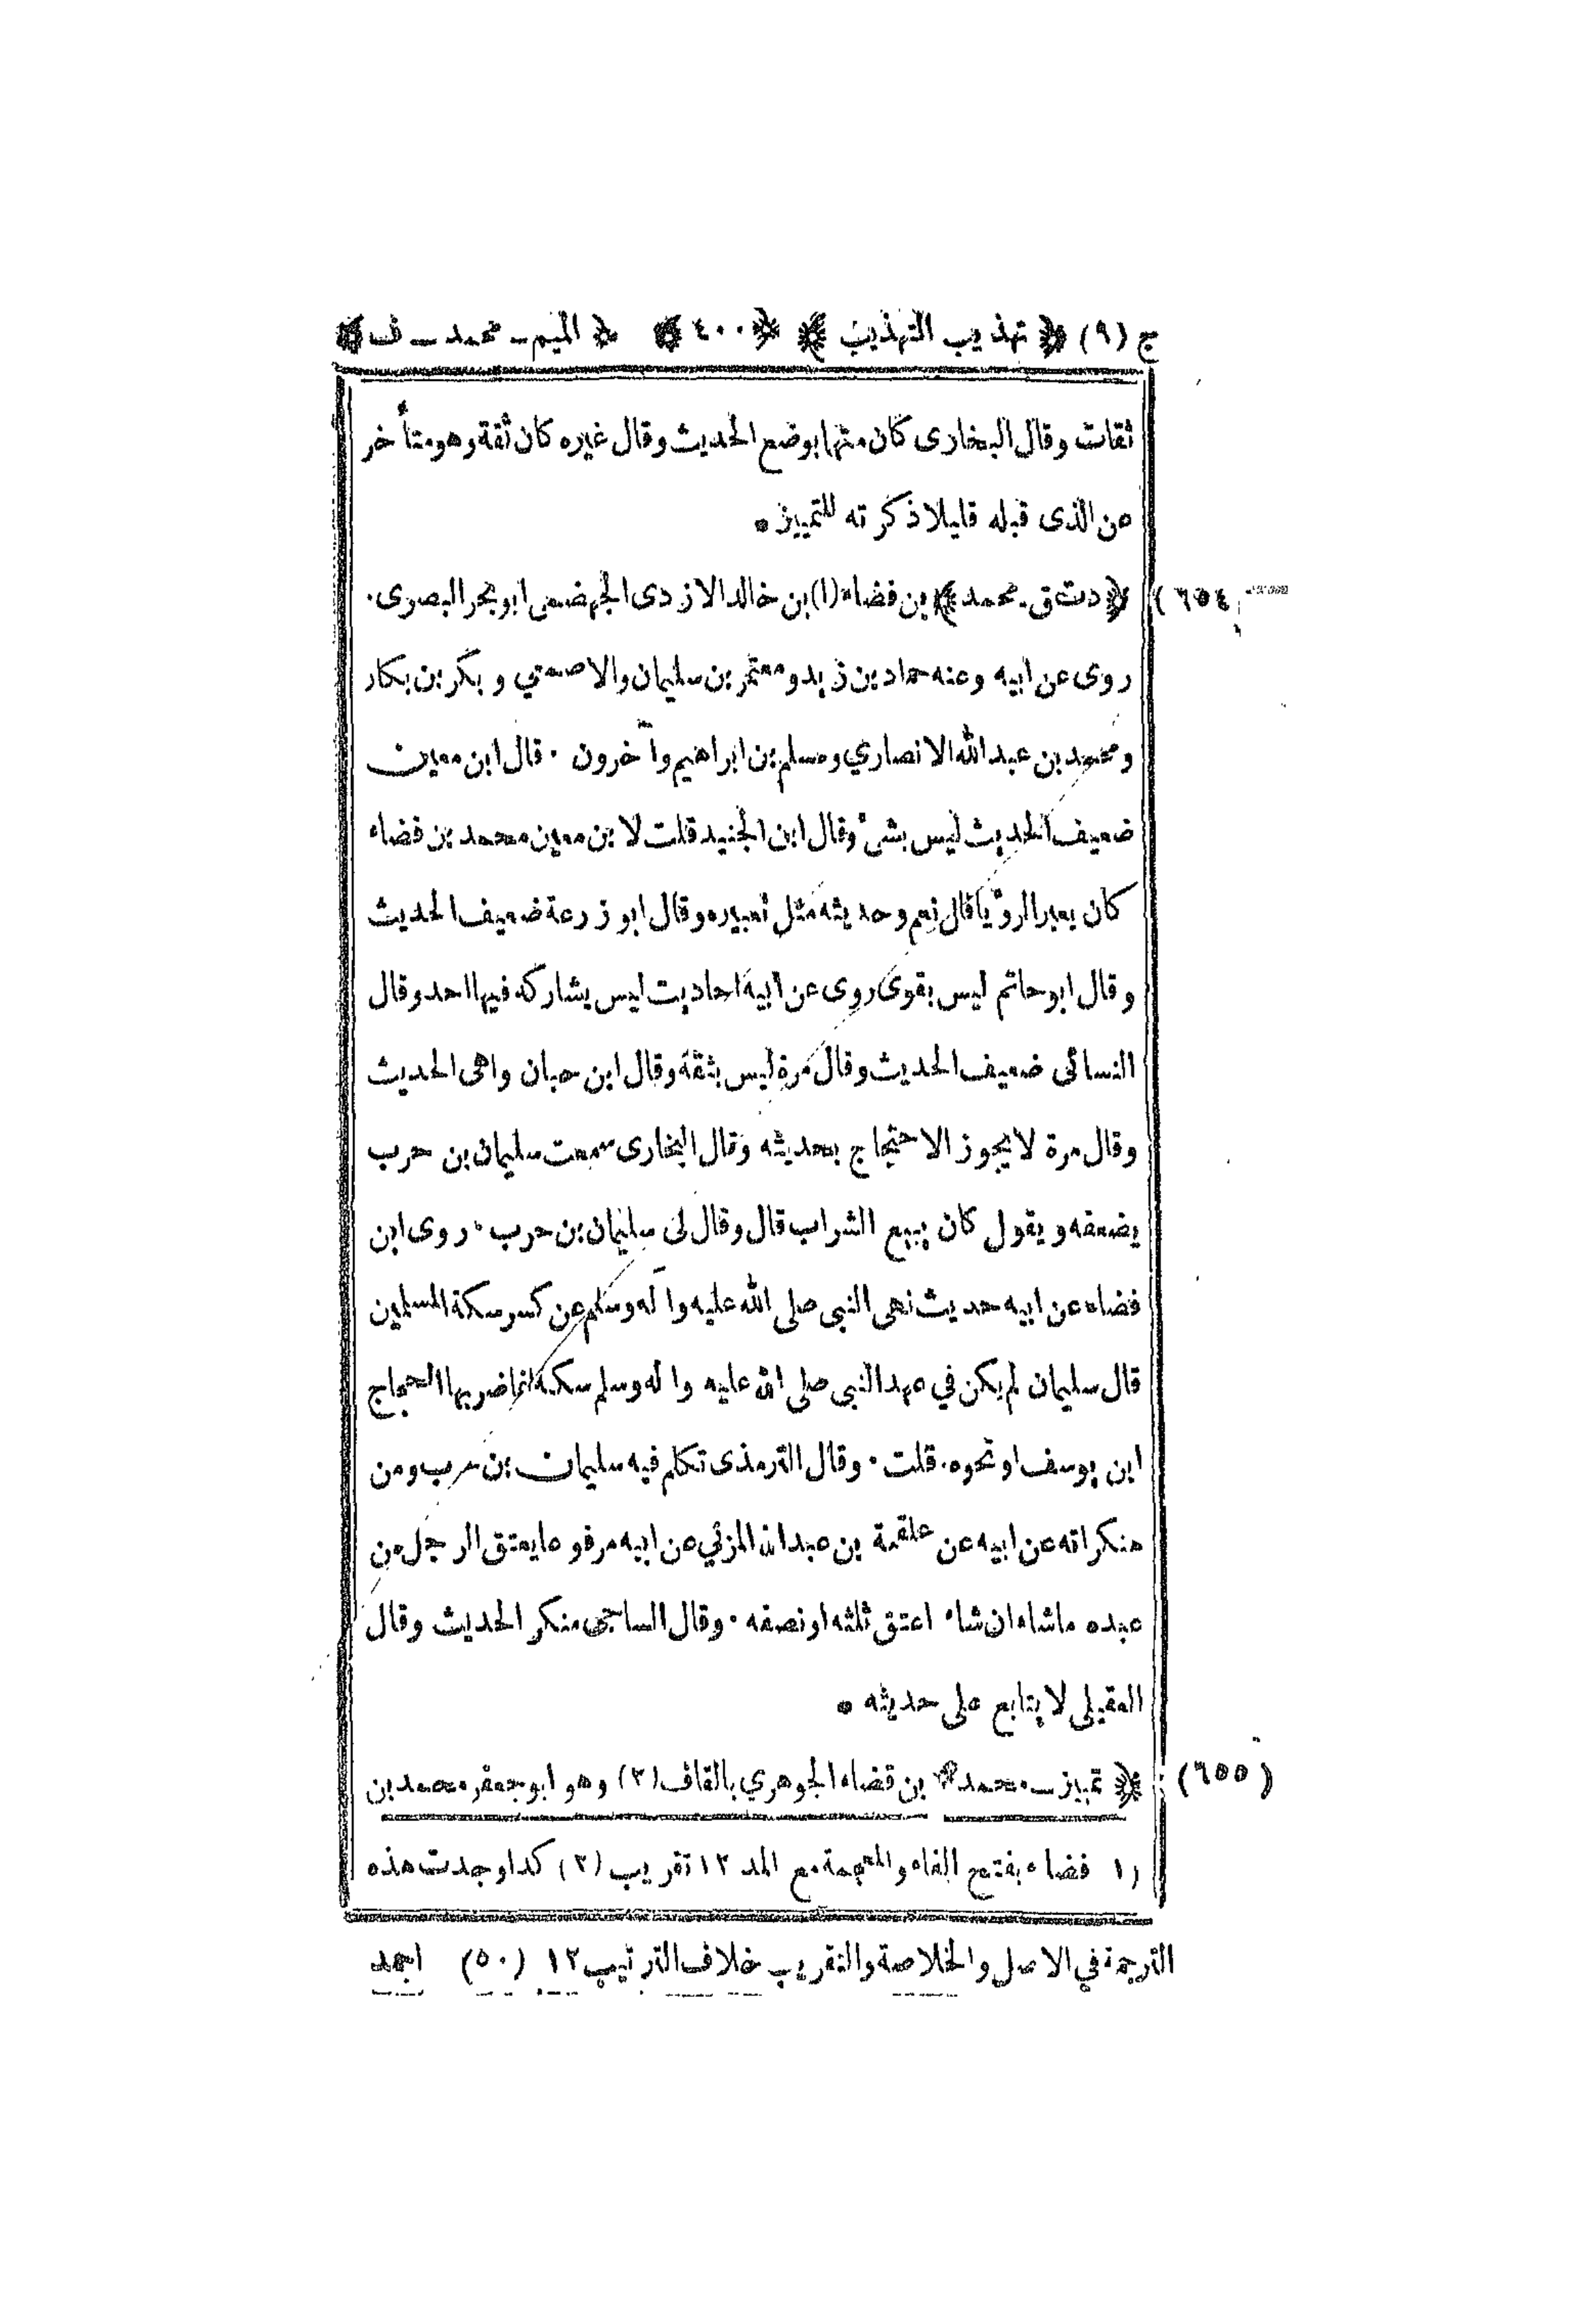 ج (٩) ﴿ تهذيب التهذيب ﴾ ﴿٤٠٠﴾ ﴿ الميم ـ محمد ـ ف ﴾
ثقات وقال البخارى كان متهما بوضع الحديث وقال غيره كان ثقة وهو متأخر
عن الذى قبله قليلا ذكرته للتمييز •
(٦٥٤) ﴿ دت ق ـ محمد ﴾ بن فضاء (١) بن خالد الازدى الجهضمى ابو بحر البصرى ·
روى عن ابيه وعنه حماد بن زيد ومعتمر بن سليمان والاصمعي وبكر بن بكار
ومحمد بن عبد الله الانصاري ومسلم بن ابراهيم وآخرون · قال ابن معين
ضعيف الحديث ليس بشئ وقال ابن الجنيد قلت لابن معين محمد بن فضاء
كان يعبر الرؤيا قال نعم وحديثه مثل تعبيره وقال ابو زرعة ضعيف الحديث
وقال ابو حاتم ليس بقوى روى عن ابيه احاديث ليس يشاركه فيها احد وقال
النسائى ضعيف الحديث وقال مرة ليس بثقة وقال ابن حبان واهى الحديث
وقال مرة لا يجوز الاحتجاج بحديثه وقال البخارى سمعت سليمان بن حرب
يضعفه ويقول كان يبيع الشراب قال وقال لى سليمان بن حرب · روى ابن
فضاء عن ابيه حديث نهى النبى صلى الله عليه وآله وسلم عن كسر سكة المسلمين
قال سليمان لم يكن في عهد النبى صلى الله عليه وآله وسلم سكة انما ضربها الحجاج
ابن يوسف او نحوه · قلت · وقال الترمذى تكلم فيه سليمان بن حرب ومن
منكراته عن ابيه عن علقمة بن عبد الله المزني عن ابيه مرفوعا يعتق الرجل من
عبده ماشاء ان شاء اعتق ثلثه او نصفه · وقال الساجى منكر الحديث وقال
العقيلى لا يتابع على حديثه •
(٦٥٥) ﴿ تمييز ـ محمد ﴾ بن قضاء الجوهري بالقاف (٢) وهو ابو جعفر محمد بن
(١ فضاء بفتح الفاء والمعجمة مع المد ١٢ تقريب (٢) كذا وجدت هذه
الترجمة في الاصل والخلاصة والتقريب خلاف الترتيب ١٢ (٥٠) احمد